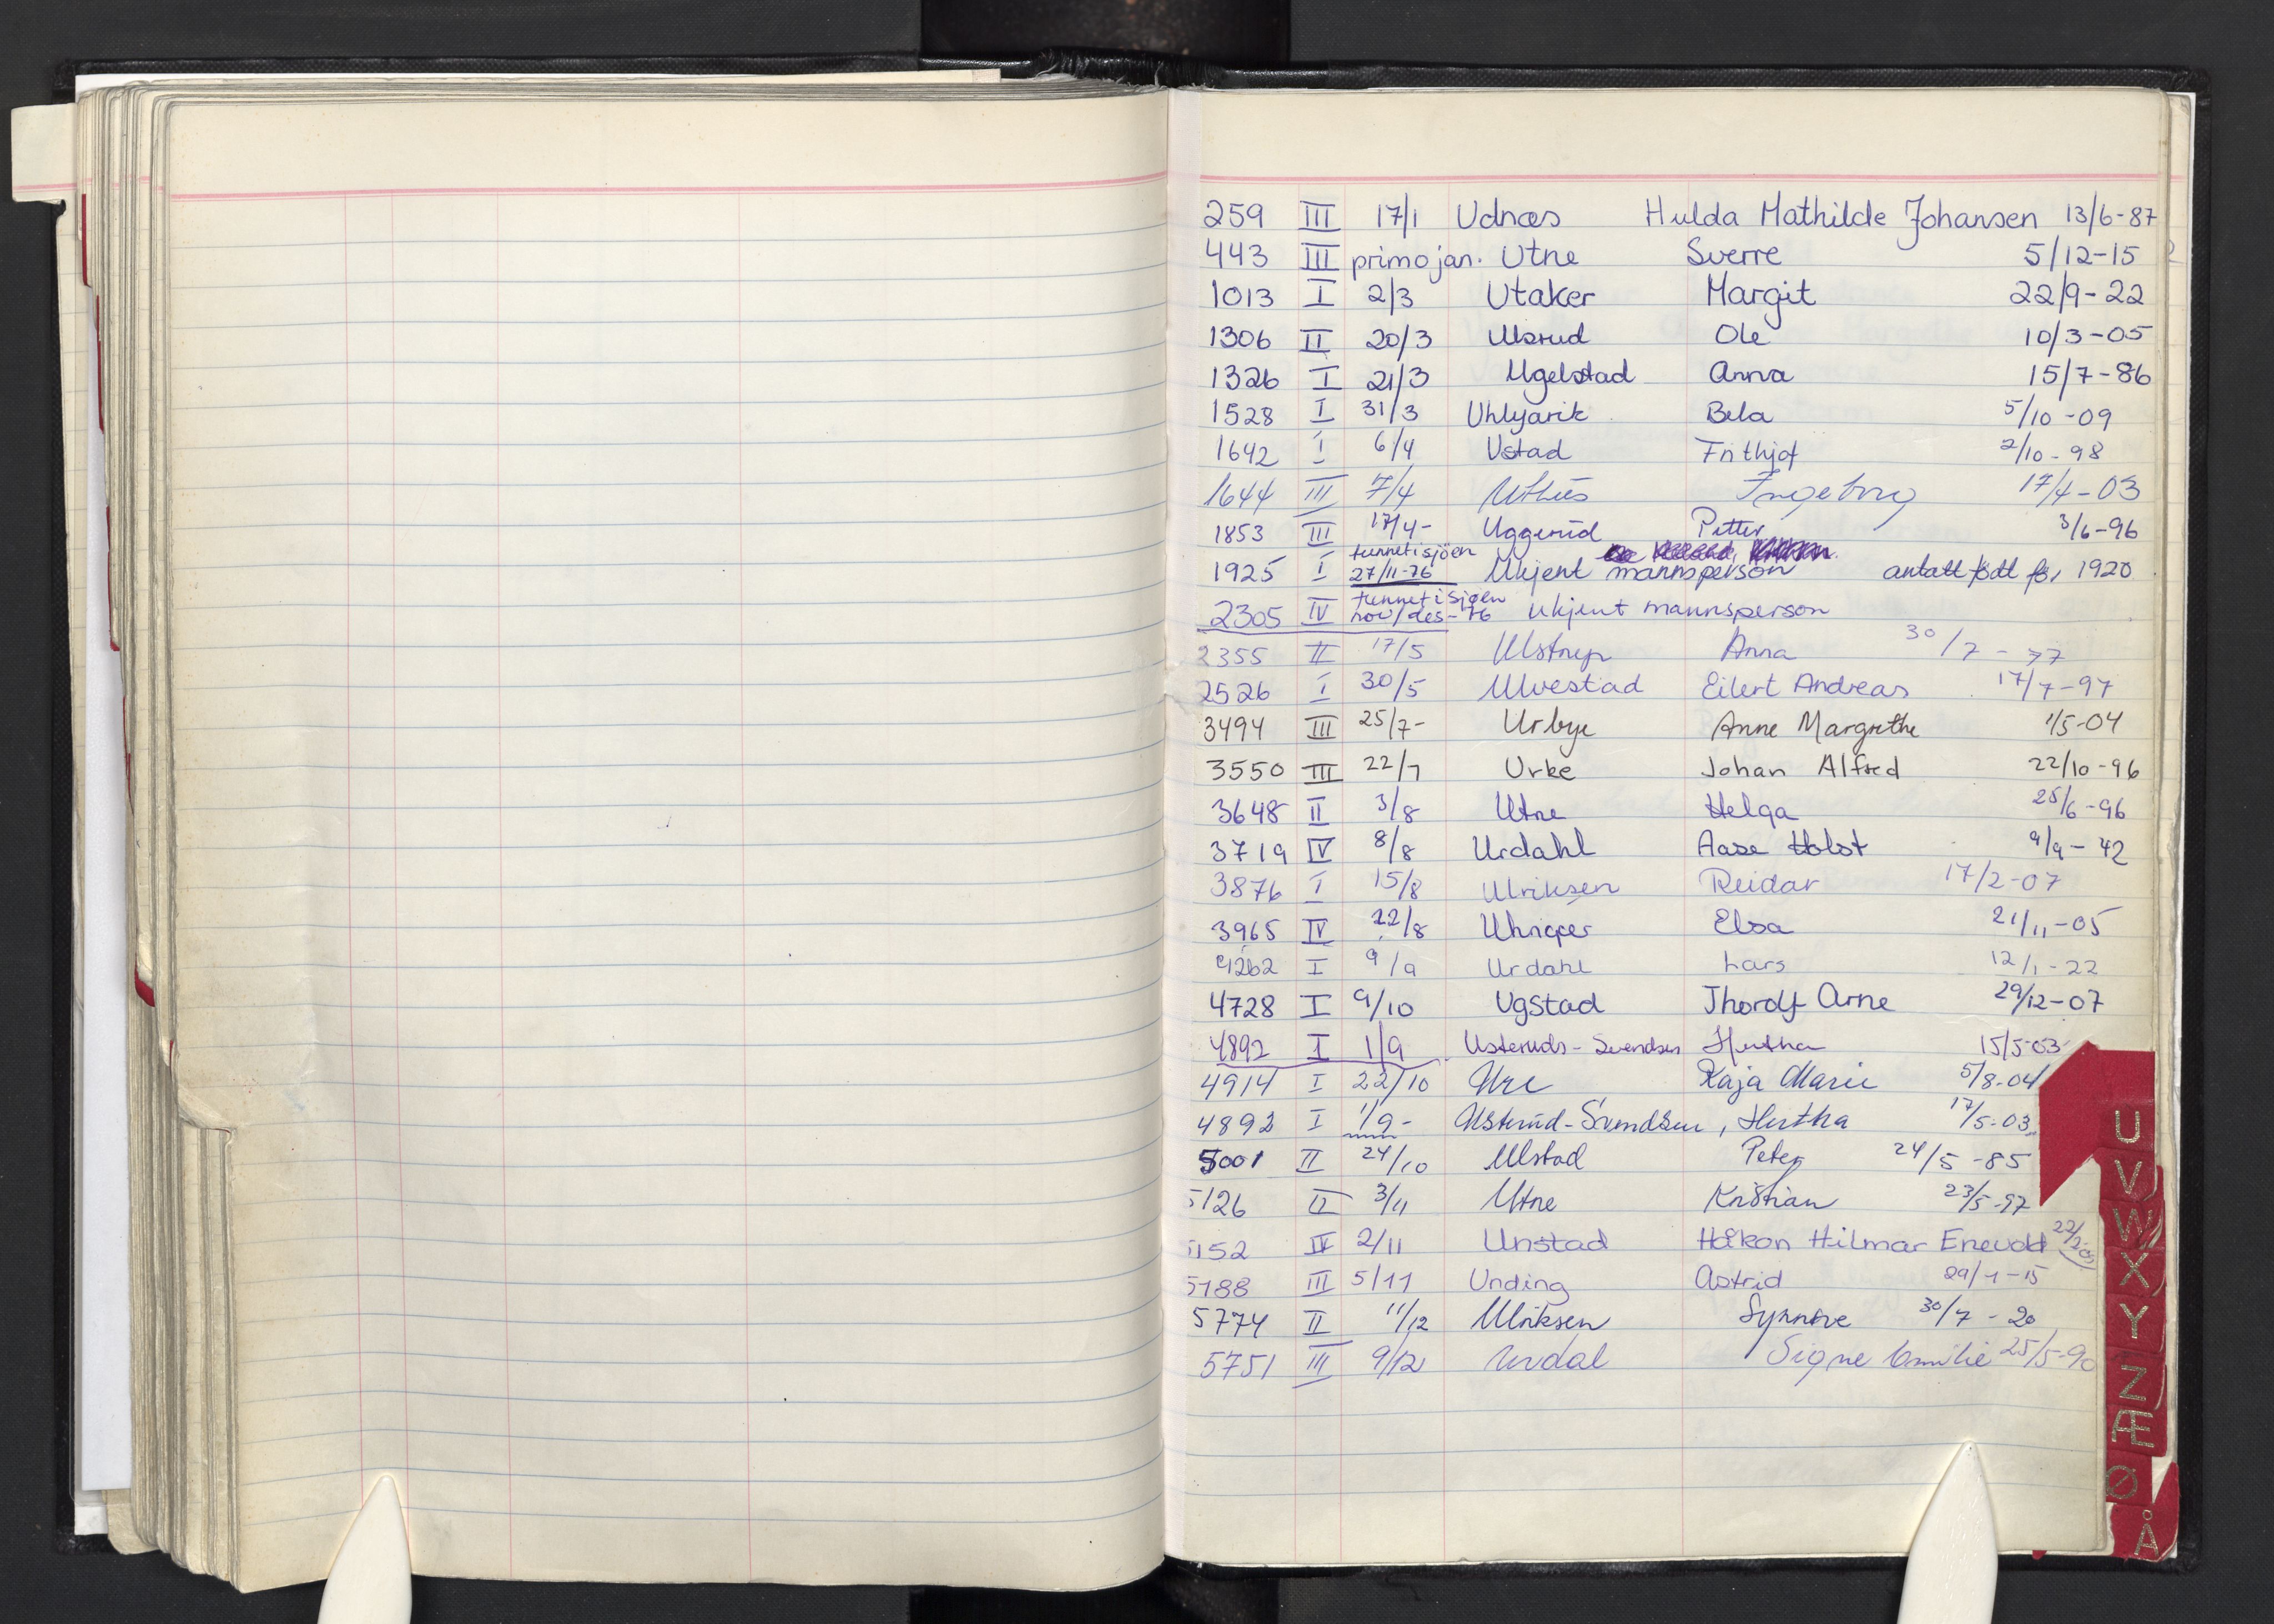 259 III 17/1 Udnæs Hulda Mathilde Johansen 13/6-87
443 III primo jan. Utne Sverre 5/12-15
1013 I 2/3 Utaker Margit 22/9-22
1306 II 20/3 Ulsrud Ole 10/3-05
1326 I 21/3 Ugelstad Anna 15/7-86
1528 I 31/3 Uhlyarik Bela 5/10-09
1642 I 6/4 Ustad Frithjof 2/10-98
1644 III 7/4 Uthus Ingeborg 17/4-03
1853 III 17/4- Uggerud Petter 3/6-96
funnet i sjöen
1925 I 27/11-76 Ukjent mannsperson antatt födt før 1920
funnet i sjøen
2305 IV nov/des-76 Ukjent mannsperson
2355 II 17/5 Ulstrup Anna 30/7-77
2526 I 30/5 Ulvestad Eilert Andreas 17/7-97
3494 III 25/7- Urbye Anne Margrethe 1/5-04
3550 III 22/7 Urke Johan Alfred 22/10-96
3648 II 3/8 Utne Helga 25/6-96
3719 IV 8/8 Urdahl Aase Holst 9/9-42
3876 I 15/8 Ulriksen Reidar 17/2-07
3965 IV 22/8 Elsa 21/11-05
4262 I 9/9 Urdahl Lars 12/1-22
4728 I 9/10 Ugstad Thorolf Arne 29/12-07
4892 I 1/9 Usteruds-Svendsen Hertha 15/5-03
4914 I 22/10 Ure Kaja Marie 5/8-04
4892 I 1/9- Usterud-Svendsen, Hertha 17/5-03
5001 II 24/10 Ulstad Peter 24/5-85
5126 II 3/11 Utne Kristian 23/5-97
5152 IV 2/11 Unstad Håkon Hilmar Enevold
5188 III 5/11 Unding Astrid 29/1-15
5774 II 11/12 Ulriksen Synnöve 30/7-20
5751 III 9/12 Urdal Signe Emilie 25/5-90
U
V
W
X
Y
Z
Æ
Ø
Å